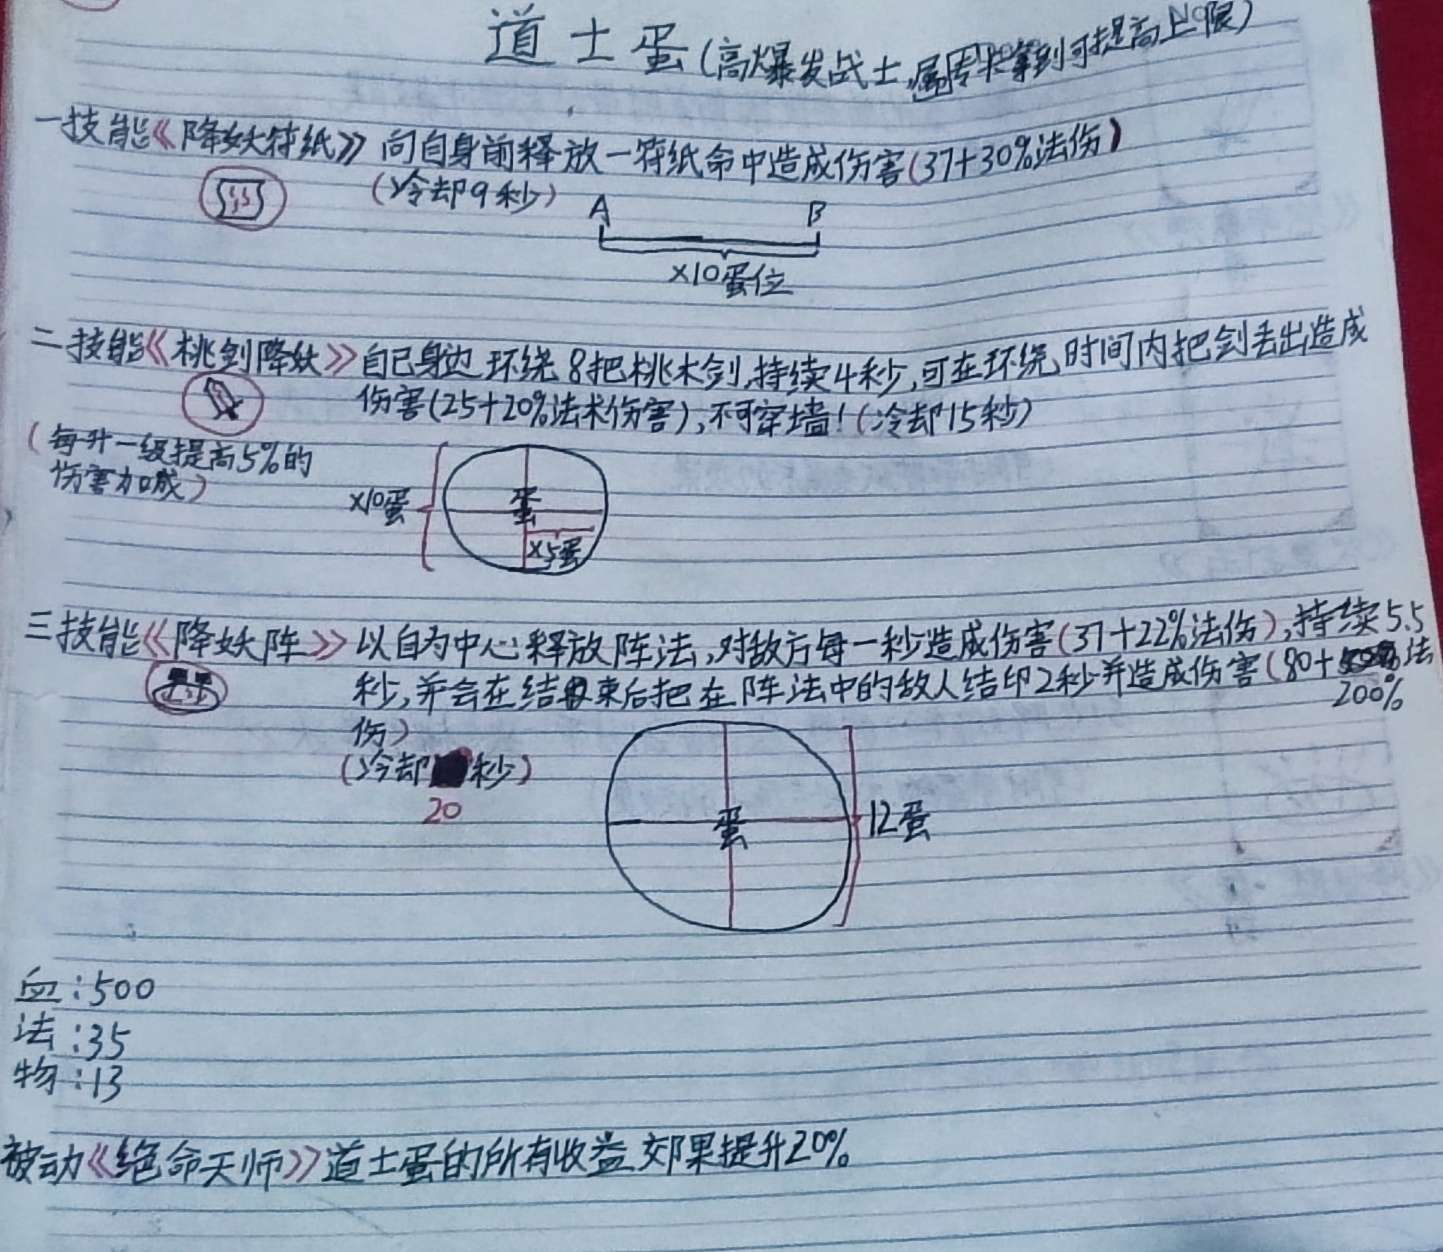 道士蛋(高爆发战士,属传卡拿到可提高上限)
一技能《降妖符纸》 向自身前释放一符纸命中造成伤害(37+30%法伤)
(冷却9秒)
A B
×10蛋位
二技能《桃剑降妖》自己身边环绕8把桃木剑,持续4秒,可在环绕时间内把剑丢出造成
伤害(25+20%法术伤害),不可穿墙!(冷却15秒)
(每升一级提高5%的
伤害加成)
×10蛋
蛋
×5蛋
三技能《降妖阵》以自为中心释放阵法,对敌方每一秒造成伤害(37+22%法伤),持续5.5
秒,并会在结束后把在阵法中的敌人结印2秒并造成伤害(80+法
200%
伤)
(冷却秒)
20
蛋
12蛋
血:500
法:35
物:13
被动《绝命天师》道士蛋的所有收益効果提升20%